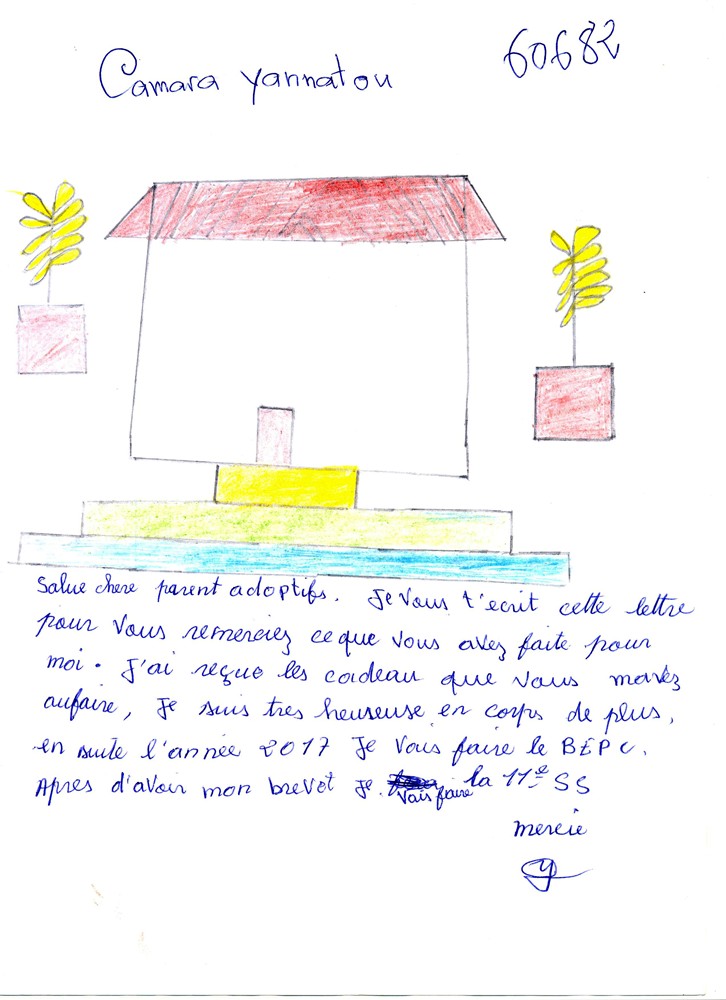 Camara Yannatou
60682
Salue chere parent adoptifs. Je vous t'ecrit cette lettre
pour vous remerciez ce que vous avez faite pour
moi. J'ai reçue les cadeau que vous mavez
aufaire, Je suis tres heuseuse en corps de plus,
en suite l'année 2017 Je vais faire le BEPC.
Apres d'avoir mon brevet je. vais faire la 11e SS
mercie